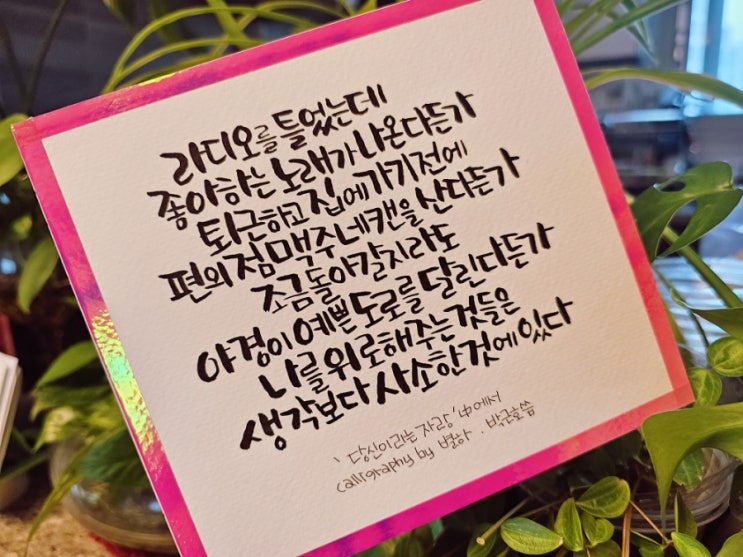 라디오를 틀었는데
좋아하는 노래가 나온다든가
퇴근하고 집에 가기전에
편의점 맥주 네캔을 산다든가
조금 돌아갈지라도
야경이 예쁜 도로를 달린다든가
나를 위로해주는 것들은
생각보다 사소한것에 있다
'당신이라는 자랑' 中에서
calligraphy by 별하 . 박근호 씀